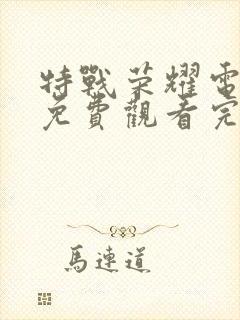 特戰荣耀電
免費觀看完
馬連道